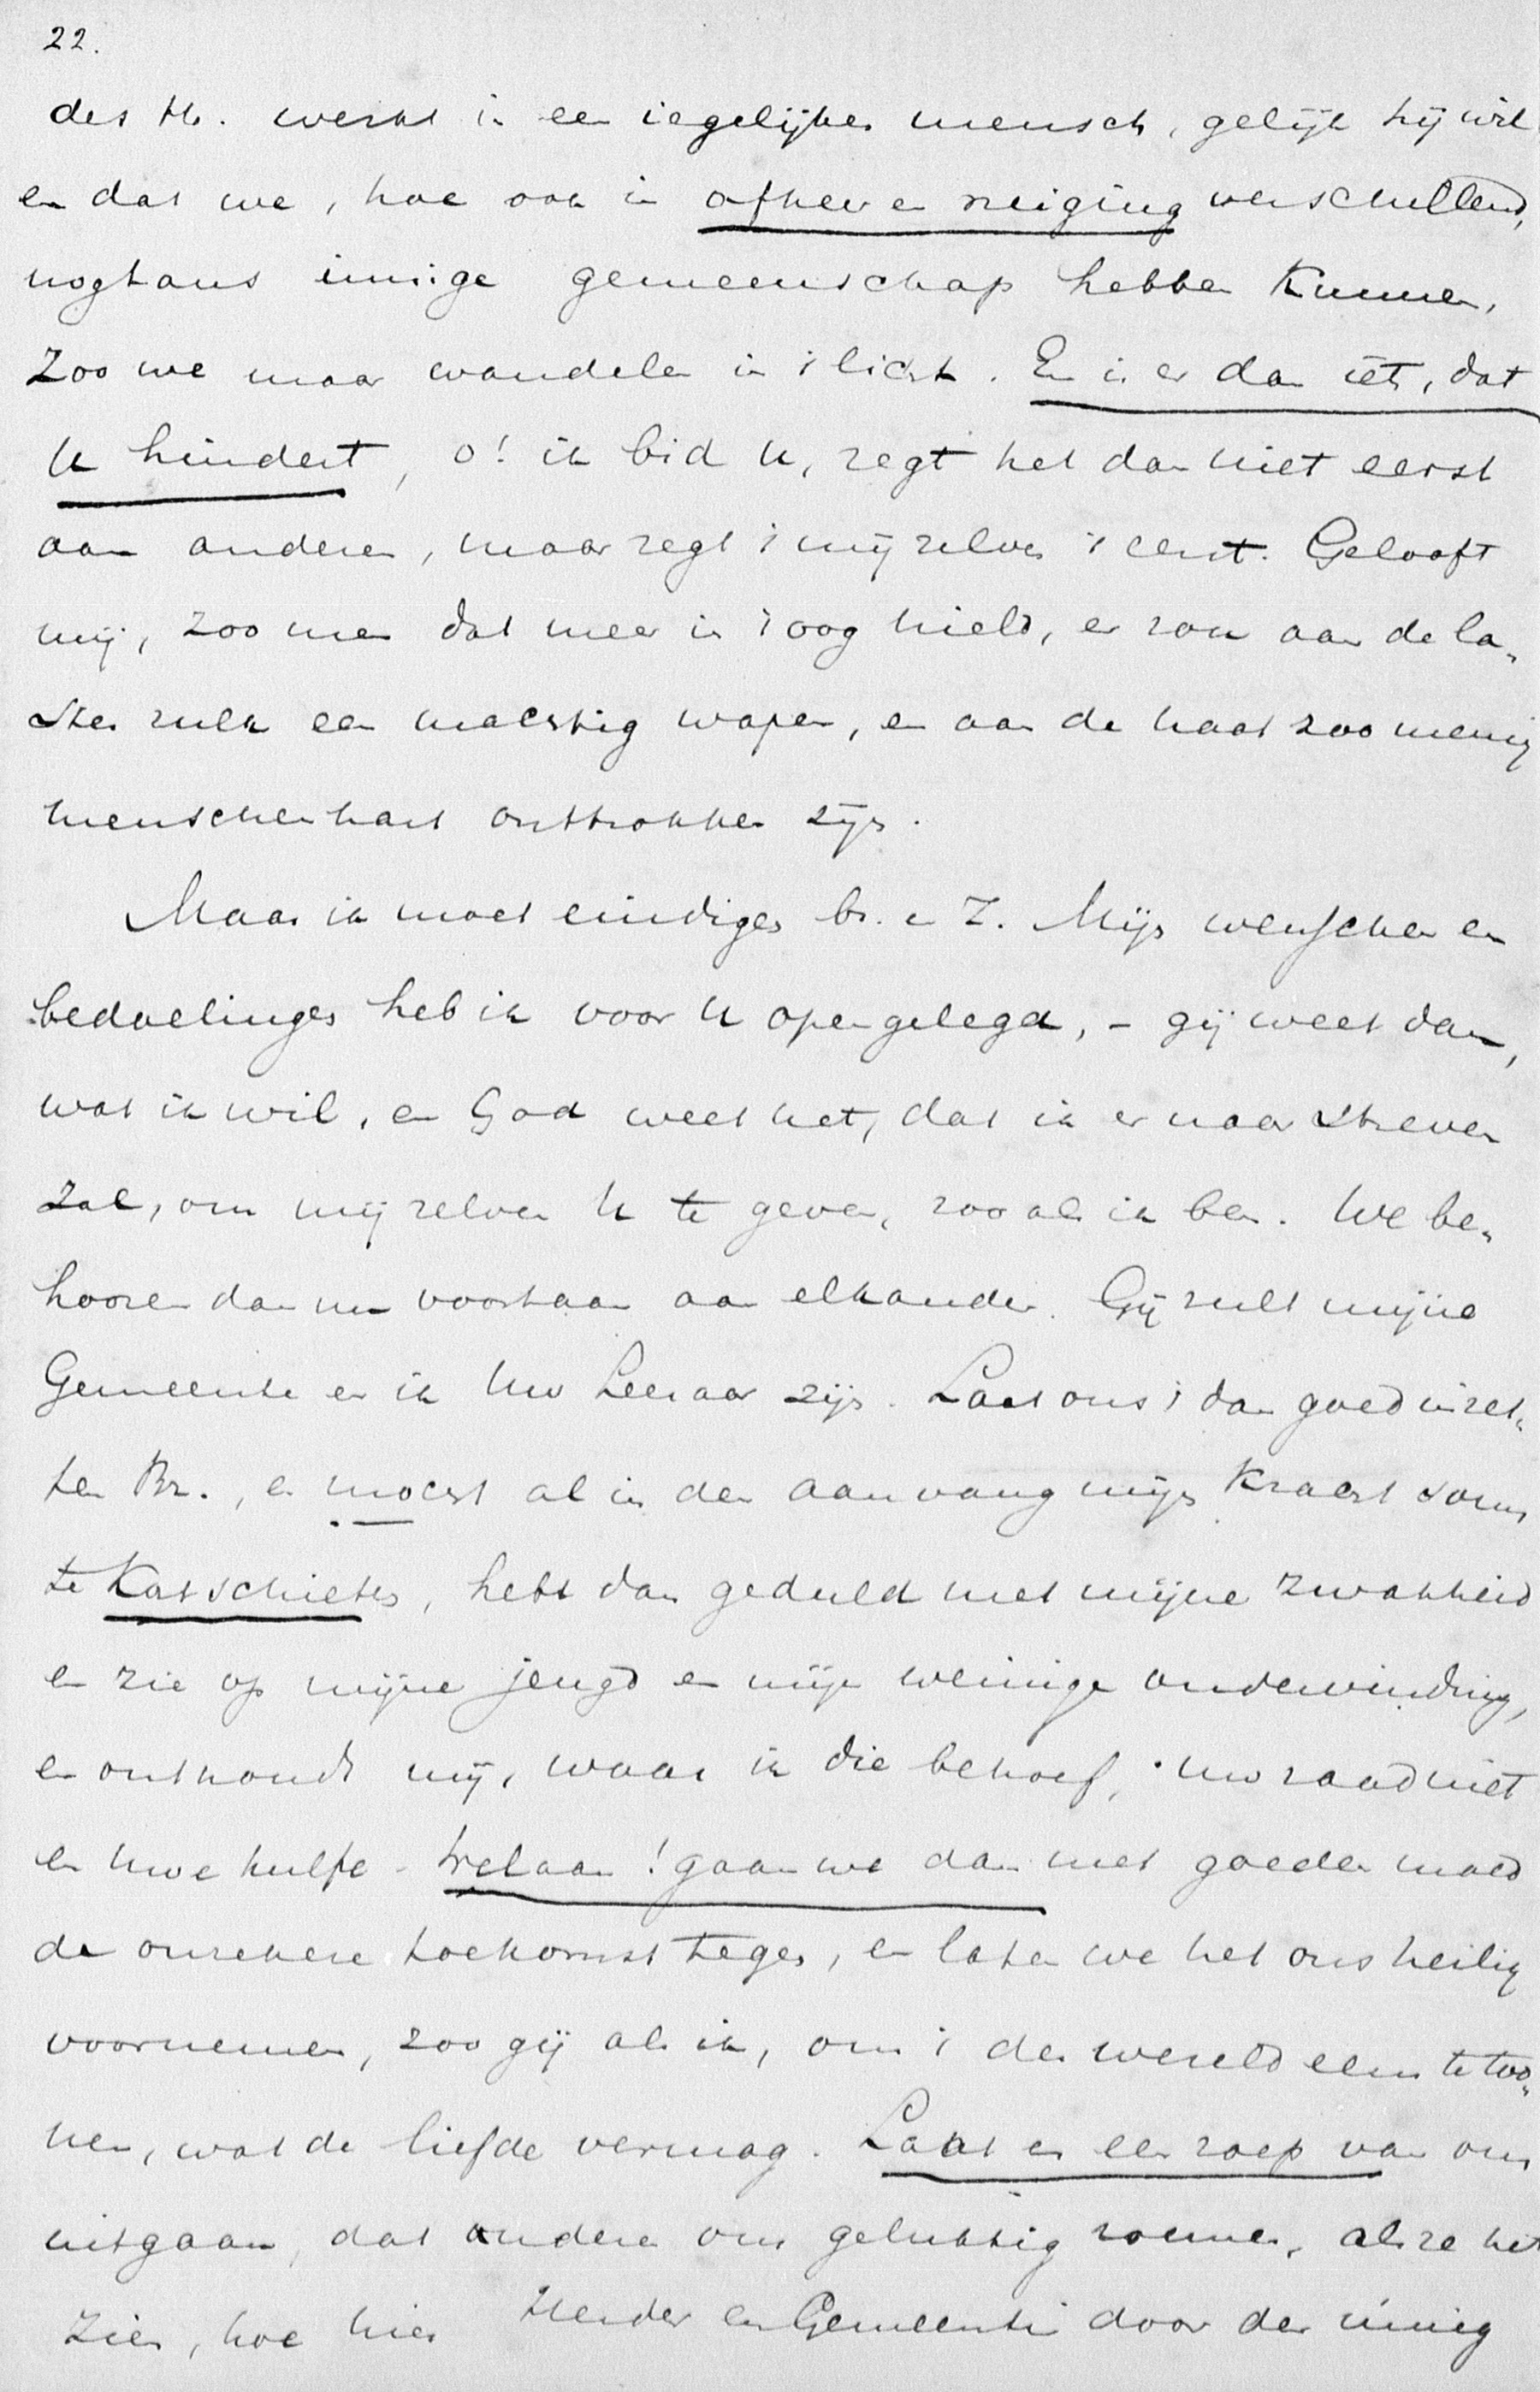 22.
des H. werkt in een iegelijken mensch, gelijk hij wil
en dat we, hoe ook in afkeer en neiging verschillend,
nogtans innige gemeenschap hebben kunnen,
zoo we maar wandelen in 't licht. En is er dan iets, dat
U hindert, o! ik bid U, zegt het dan niet eerst
aan anderen, maar zegt 't mij zelven 't eerst. Gelooft
mij, zoo men dat meer in 't oog hield, er zou aan de la„
ster zulk een machtig wapen, en aan de haat zoo menig
menschenhart onttrokken zijn.
Maar ik moet eindigen br. en Z. Mijn wenschen en
bedoelingen heb ik voor U opengelegd, – gij weet dan,
wat ik wil, en God weet het, dat ik er naar streven
zal, om mij zelven U te geven, zoo als ik ben. We be„
hooren dan nu voortaan aan elkander. Gij zult mijne
Gemeente en ik Uw Leeraar zijn. Laat ons 't dan goed inzet„
ten Br., en mocht al in den aanvang mijn kracht soms
te kort schieten, hebt dan geduld met mijne zwakheid
en zie op mijne jeugd en mijn weinige ondervinding,
en onthoudt mij, waar ik die behoef, Uw raad niet
en Uwe hulpe – Welaan! gaan we dan met goeden moed
de onzekere toekomst tegen, en laten we het ons heilig
voornemen, zoo gij als ik, om 't der wereld eens te too„
nen, wat de liefde vermag. Laat er een roep van ons
uitgaan, dat anderen ons gelukkig roemen, als ze het
zien, hoe hier Herder en Gemeente door den innig